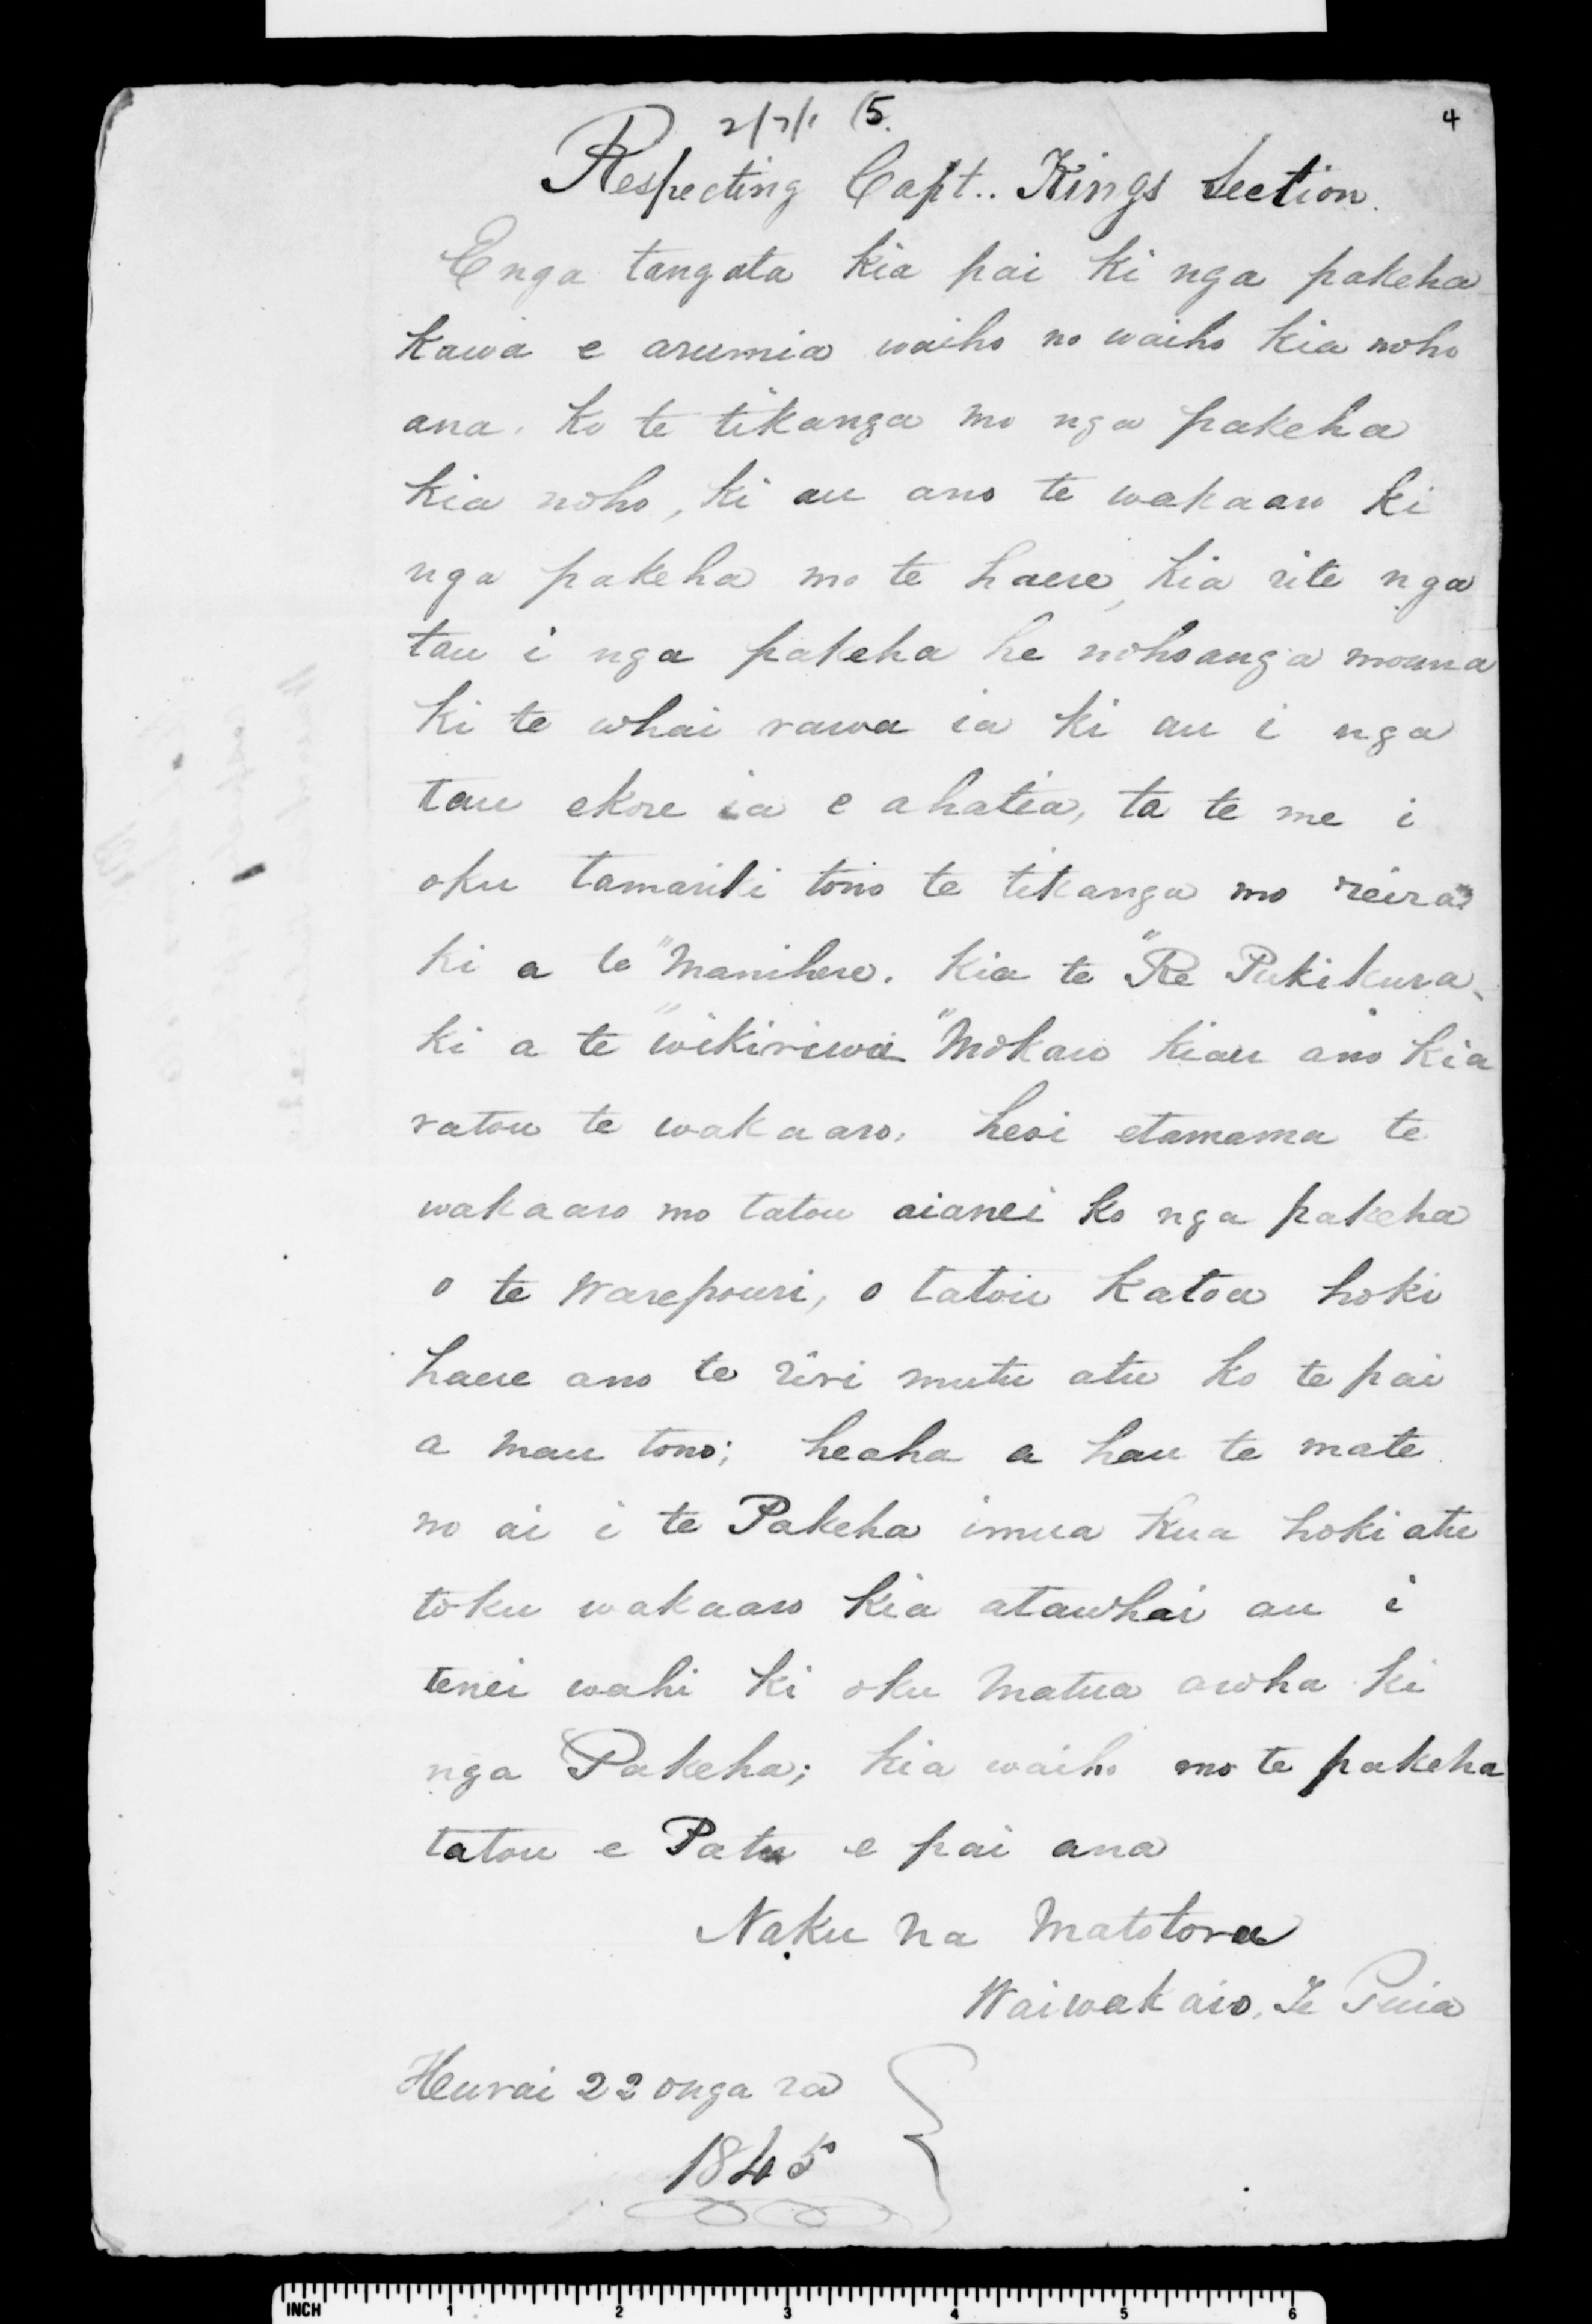 (5.
4
Respecting Capt.. Kings Section.
E nga tangata kia pai ki nga pakeha
kawa e arumia waiho no waiho kia noho
ana. ko te tikanga mo nga pakeha
kia noho, ki au ano te wakaaro ki
nga pakeha mo te haere, kia rite nga
tau i nga pakeha he nohoanga mouna
ki te whai rawa ia ki au i nga
tau ekore ia e ahatia, ta te me i
oku tamariki tono te tikanga mo reira
ki a te "Manihere. kia te "Re Pukikura
ki a te "wikiriwa "Mokau kiau ano kia
ratou te wakaaro. heoi etamama te
wakaaro mo tatou aianei ko nga pakeha
o te Warepouri, o tatou katoa hoki
haere ano te riri mutu atu ko te pai
a mau tono; heaha a hau te mate
no ai i te Pakeha imua kua hoki atu
toku wakaaro kia atawhai au i
tenei wahi ki oku Matua aroha ki
nga Pakeha; kia waiho mo te pakeha
tatou e Patu e pai ana
Naku na Matotora
Waiwakaio, Te Puia
Heurai 22 onga ra
1845
INCH 1 2 3 4 5 6